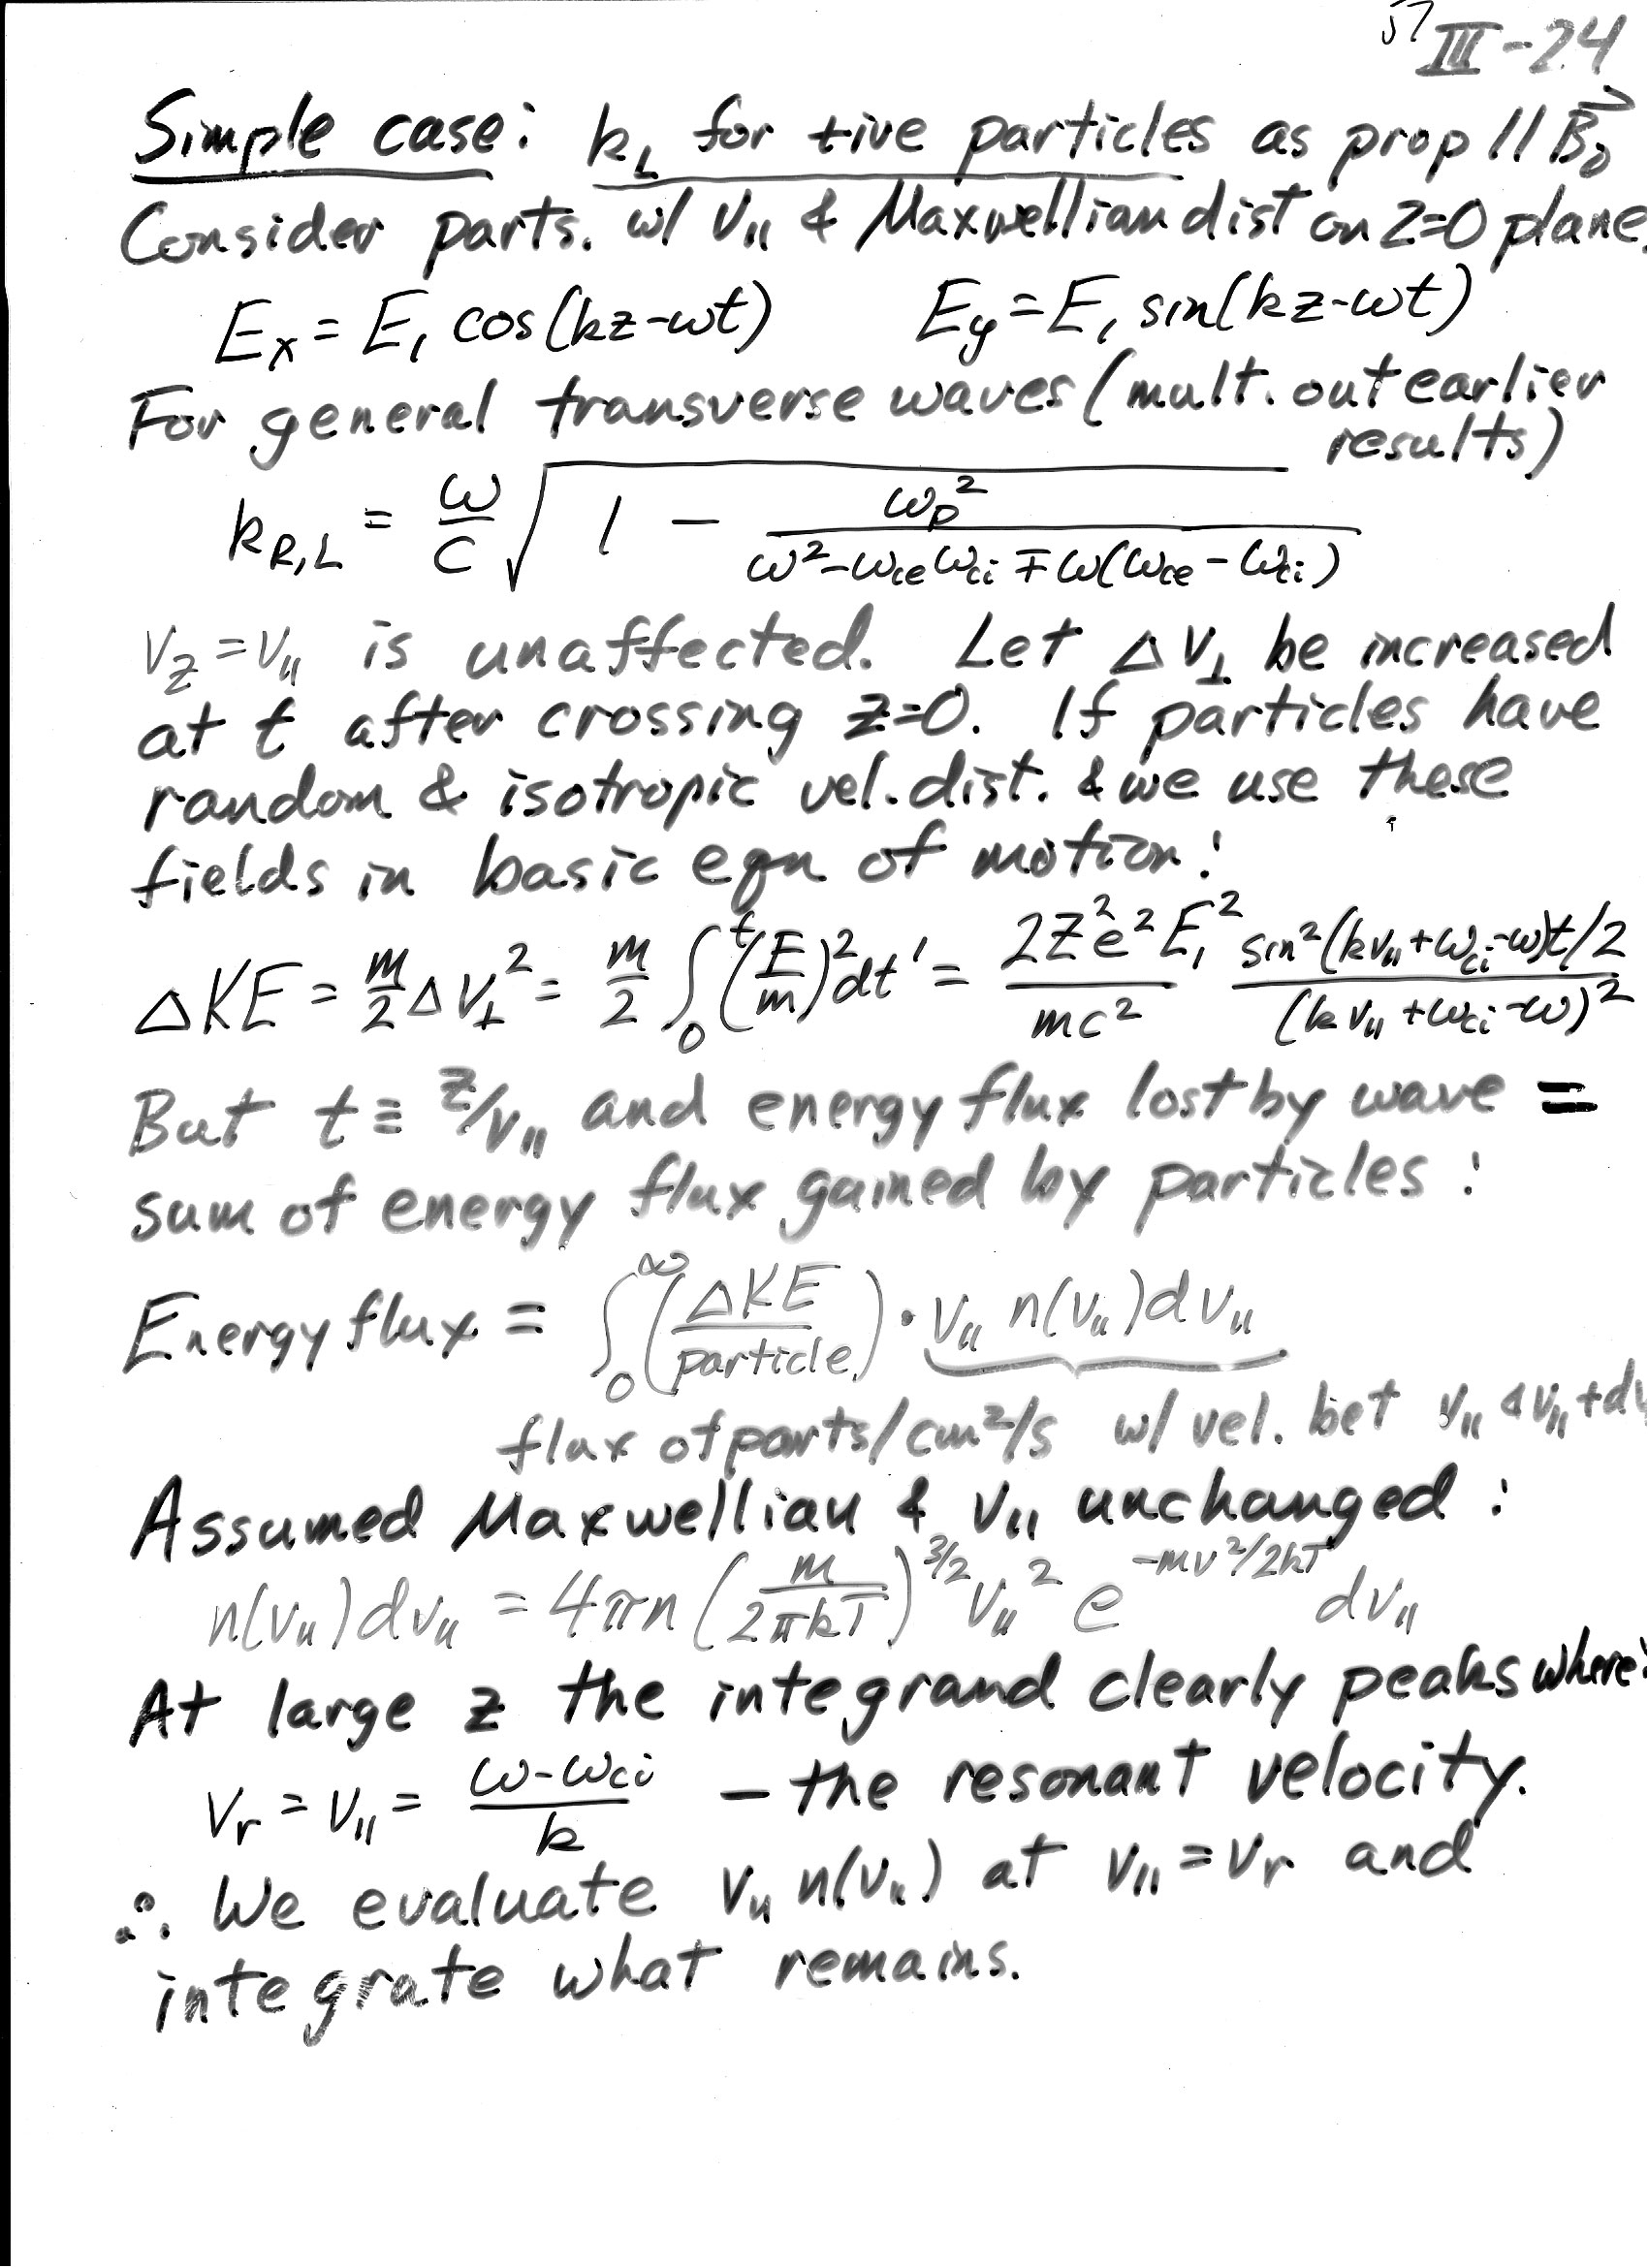 57 III-24
Simple case: k_L for +ive particles as prop // B⃗₀
Consider parts. w/ v_∥ & Maxwellian dist on Z=0 plane.
E_x = E₁ cos(kz-ωt) E_y = E₁ sin(kz-ωt)
For general transverse waves (mult. out earlier
results)
k_{R,L} = ω/c √(1 - ω_p²/(ω²-ω_ce ω_ci ∓ ω(ω_ce - ω_ci)))
V_z = V_∥ is unaffected. Let ΔV_⊥ be increased
at t after crossing z=0. If particles have
random & isotropic vel. dist. & we use these
fields in basic eqn of motion:
ΔKE = m/2 ΔV_⊥² = m/2 ∫₀ᵗ (E/m)² dt' = 2Z²e²E₁²/mc² sin²(kv_∥+ω_ci-ω)t/2 / (kv_∥+ω_ci-ω)²
But t ≡ z/v_∥ and energy flux lost by wave =
sum of energy flux gained by particles:
Energy flux = ∫₀^∞ (ΔKE/particle) · v_∥ n(v_∥) dv_∥
flux of parts/cm²/s w/ vel. bet v_∥ & v_∥+dv
Assumed Maxwellian & v_∥ unchanged:
n(v_∥)dv_∥ = 4πn (m/2πkT)^{3/2} v_∥² e^{-mv²/2kT} dv_∥
At large z the integrand clearly peaks where:
V_r = V_∥ = (ω-ω_ci)/k - the resonant velocity.
∴ We evaluate v_∥ n(v_∥) at v_∥ = v_r and
integrate what remains.